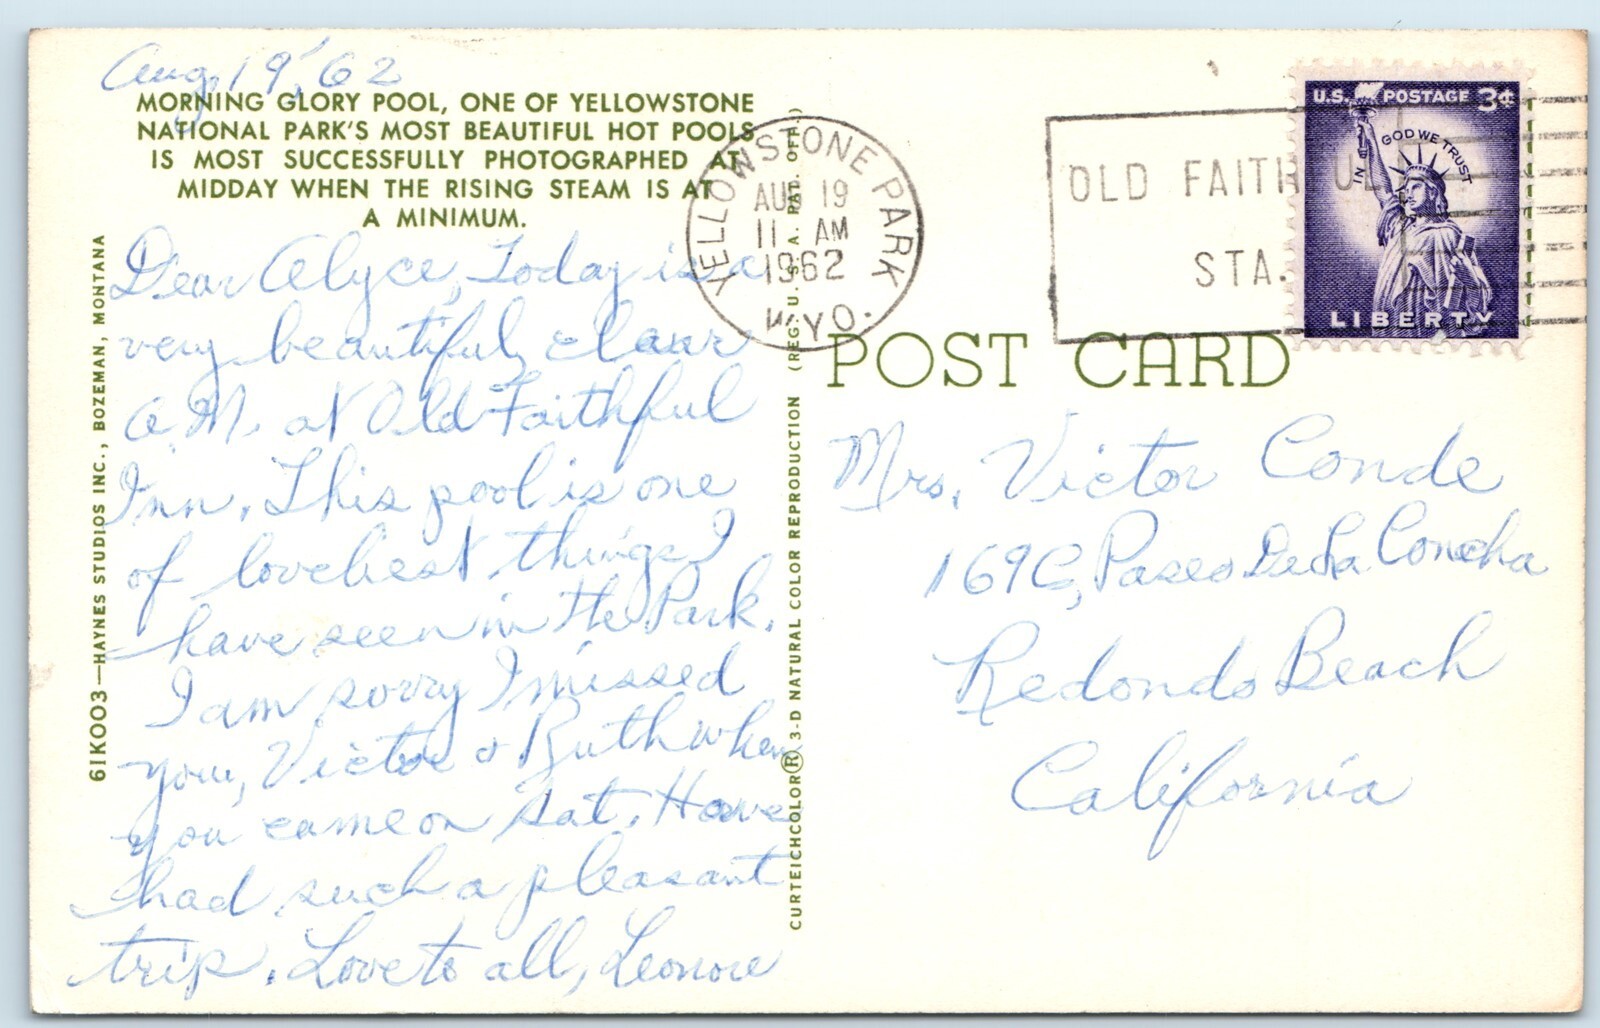 Aug, 19, '62
MORNING GLORY POOL, ONE OF YELLOWSTONE
NATIONAL PARK'S MOST BEAUTIFUL HOT POOLS
IS MOST SUCCESSFULLY PHOTOGRAPHED AT
MIDDAY WHEN THE RISING STEAM IS AT
A MINIMUM.
Dear Alyce, Today is a
very beautiful, clear
A.M. at Old Faithful
Inn. This pool is one
of loveliest things I
have seen in the Park.
I am sorry I missed
you, Victor & Ruth when
you came on Sat. Have
had such a pleasant
trip. Love to all, Leonore
61K003—HAYNES STUDIOS INC., BOZEMAN, MONTANA
CURTEICHCOLOR® 3-D NATURAL COLOR REPRODUCTION (REG. U.S.A. PAT. OFF.)
YELLOWSTONE PARK
AUG 19
11 AM
1962
WYO.
OLD FAITHFUL
STA.
U.S. POSTAGE 3¢
IN GOD WE TRUST
LIBERTY
POST CARD
Mrs. Victor Conde
169C, Paseo De La Concha
Redondo Beach
California